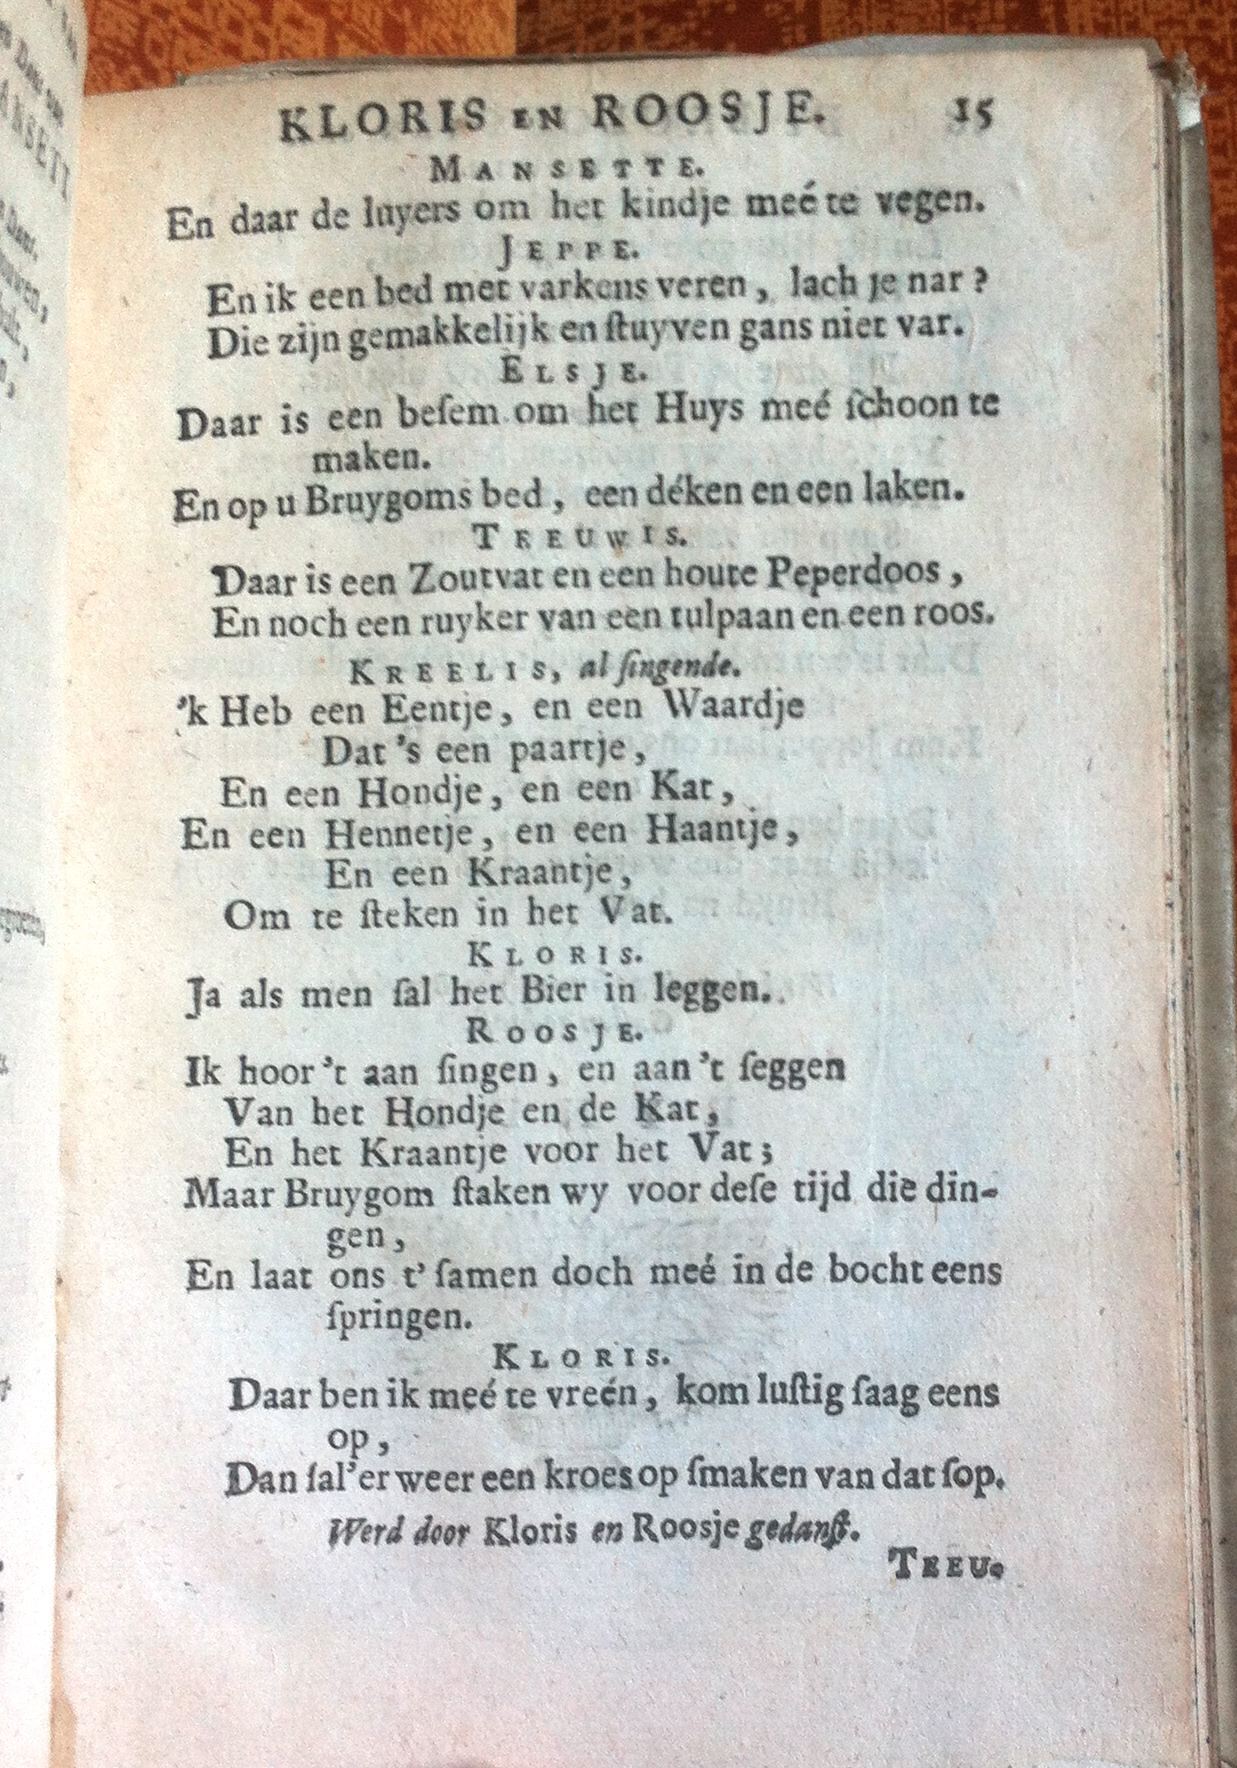 KLORIS EN ROOSJE. 15
MANSETTE.
En daar de luyers om het kindje meé te vegen.
JEPPE.
En ik een bed met varkens veren, lach je nar?
Die zijn gemakkelijk en ſtuyven gans niet var.
ELSJE.
Daar is een beſem om het Huys meé ſchoon te
maken.
En op u Bruygoms bed, een déken en een laken.
TEEUWIS.
Daar is een Zoutvat en een houte Peperdoos,
En noch een ruyker van een tulpaan en een roos.
KREELIS, al ſingende.
'k Heb een Eentje, en een Waardje
Dat 's een paartje,
En een Hondje, en een Kat,
En een Hennetje, en een Haantje,
En een Kraantje,
Om te ſteken in het Vat.
KLORIS.
Ja als men ſal het Bier in leggen.
ROOSJE.
Ik hoor 't aan ſingen, en aan 't ſeggen
Van het Hondje en de Kat,
En het Kraantje voor het Vat;
Maar Bruygom ſtaken wy voor deſe tijd die din-
gen,
En laat ons t' ſamen doch meé in de bocht eens
ſpringen.
KLORIS.
Daar ben ik meé te vreén, kom luſtig ſaag eens
op,
Dan ſal'er weer een kroes op ſmaken van dat ſop.
Werd door Kloris en Roosje gedanſt.
TEEU-